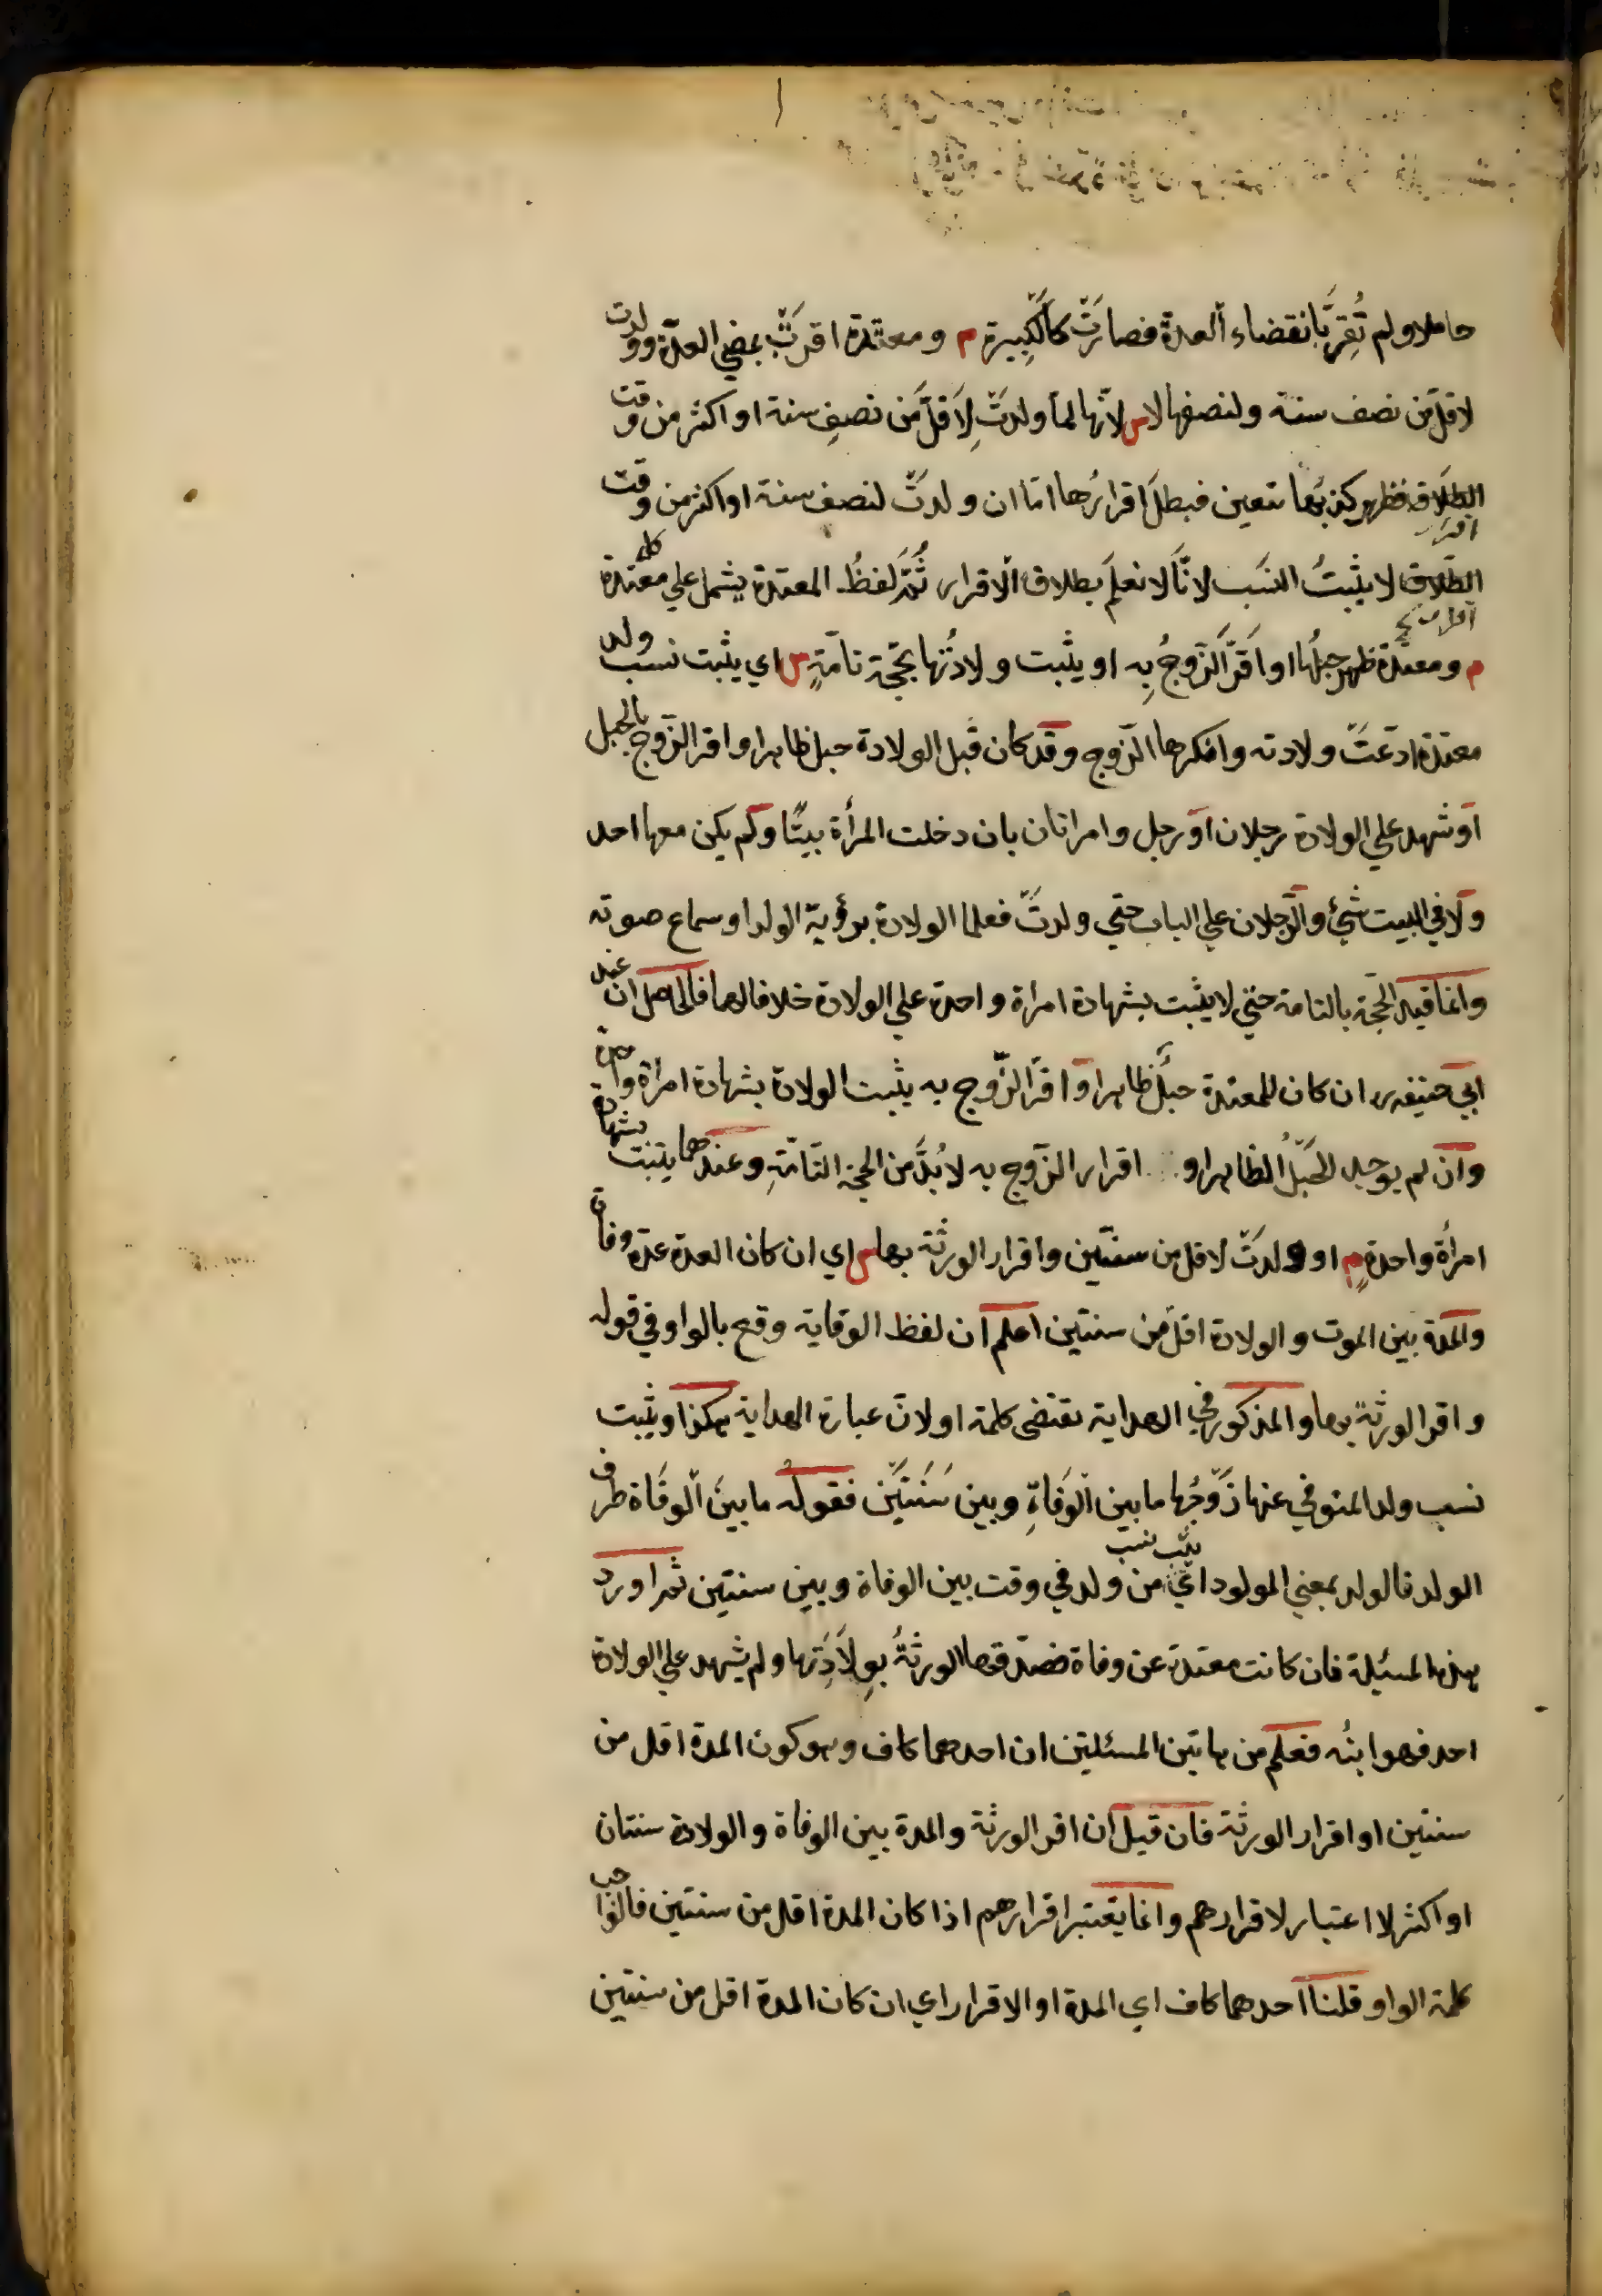 حاملا ولم تُقِرَّ بانقضاء العدة فصارَتْ كالكَبِيرة م ومعتدة اقرتْ بمضي العدّة وولدت
لاقلّ من نصف سنة ولنصفها لا س لانّها لما ولدتْ لاَقلَّ مَن نصفِ سنة او اكثر من وقت
الطلاق فظهر كذبُها بيقين فبطلَ اقرارُها امّا ان ولدتْ لنصف سنة او اكثر من وقت
اقرار
الطلاق لا يثبتُ النسَب لانّا لا نعلم بطلاق الاقرار ثُمَّ لفظُ المعتدة يشمل علي كل معتدة
م ومعتدّة ظهر حبلُها او اقرّ الزّوجُ بِه او يثبت ولادتُها بحجّة تامّةٍ س اي يثبت نسب ولد
معتدة ادّعتْ ولادته وانكرها الزّوج وقد كان قبل الولادة حبل ظاهر او اقر الزّوج بالحبل
او شهد علي الولادة رجلان او رجل وامراتان بان دخلت المرأة بيتًا ولم يكن معها احد
ولا في البيت شيء والرّجلان علي الباب حتي ولدتْ فعلما الولادة برؤية الولد او سماع صوته
وانما قيد الحجّة بالتامة حتي لا يثبت بشهادة امرأة واحدة علي الولادة خلافا لهما فالحاصل ان عند
ابي حنيفه رح ان كان للمعتدة حبلٌ ظاهر او اقرّ الزّوج به يثبت الولادة بشهادة امراة واحدة
وان لم يوجد الحَبَلُ الظاهر او اقرار الزّوج به لا بُدَّ من الحجة التّامّةِ وعندهما يثبت بشهادة
امرأة واحدة م او ولدتْ لاقل من سنتين واقرار الورثة بها س اي ان كان العدة عدّة وفاة
والمدة بين الموت والولادة اقلّ من سنتين اعلم ان لفظ الوقاية وقع بالواو في قوله
واقر الورثة بها والمذكور في الهداية يقتضى كلمة او لانّ عبارة الهداية هكذا ويثبت
نسب ولد المتوفي عنها زَوْجُها ما بين الوَفاةِ وبين سَنَتَيْن فقوله ما بين الوفَاة ظرف
الولد فالولد بمعني المولود اي يثبت نسب من ولد في وقت بين الوفاة وبين سنتين ثم اورد
هذه المسئلة فان كانت معتدة عن وفاة فصدّقها الورثةُ بوِلادَتِها ولم يشهد علي الولادة
احد فهو ابنُه فعلم من هاتين المسئلتين ان احدهما كاف وهو كون المدة اقل من
سنتين او اقرار الورثة فان قيل ان اقر الورثة والمدة بين الوفاة والولادة سنتان
او اكثر لا اعتبار لاقرارهم وانما يعتبر اقرارهم اذا كان المدة اقل من سنتين فالواجب
كلمة الواو قلنا احدهما كاف اي المدة او الاقرار اي ان كان المدة اقل من سنتين